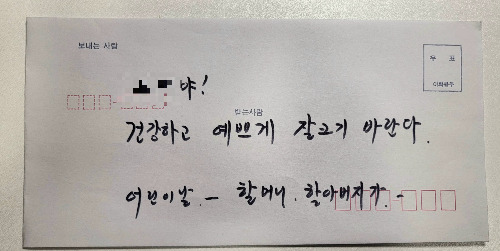 보내는 사람
우 표
야!
받는사람
건강하고 예쁘게 잘크기 바란다.
어린이날. - 할머니. 할아버지가. -